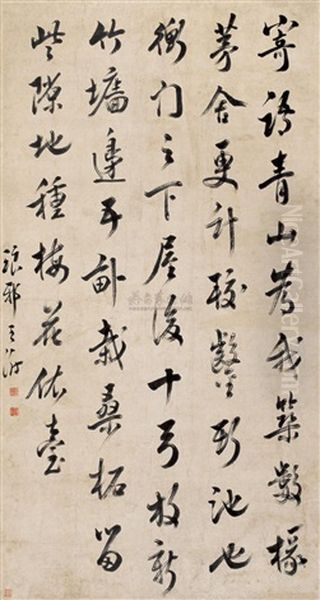 寄語青山為我築數椽
茅舍更計鑿池也
衡门之下屋後十弓放新
竹墻邊半畝栽桑柘留
些隙地種梅花依臺
琅邪王澍